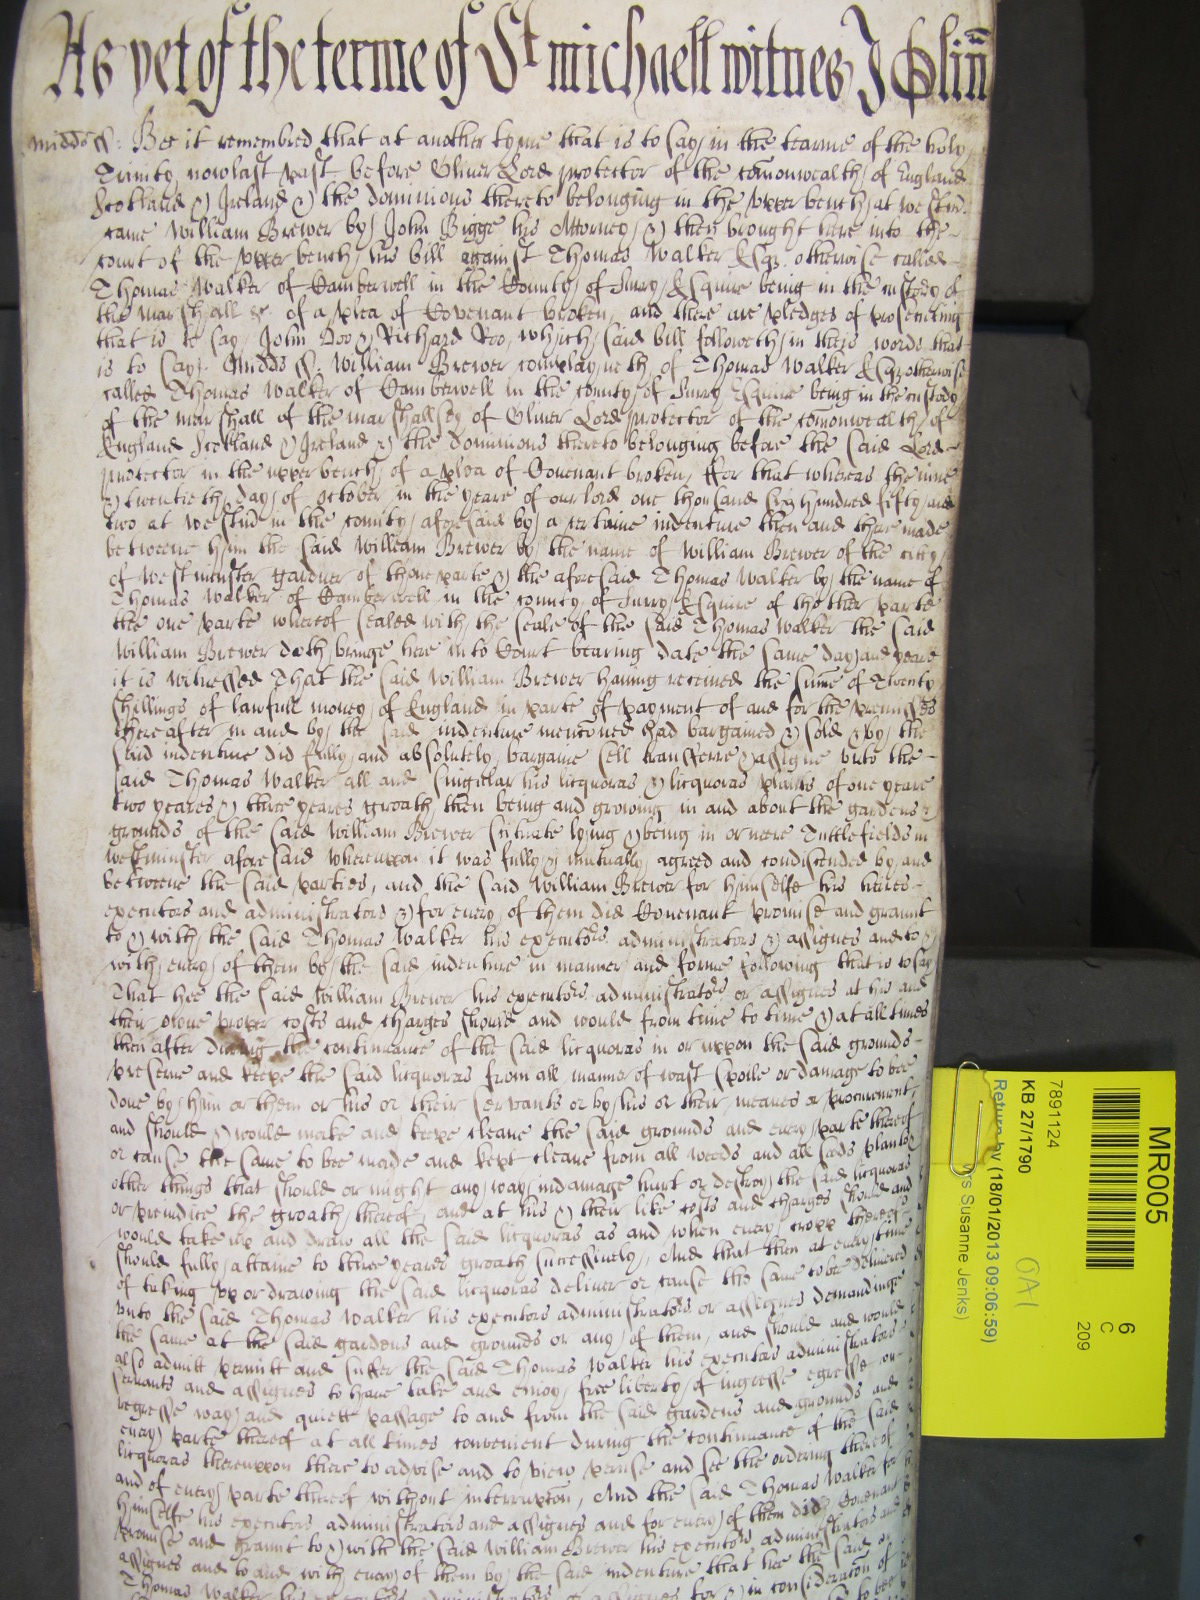 As yet of the terme of St michaell witnes J Glin̄
midds ss: Bee it remembred that at another tyme that is to say in the tearme of the holy
Trinity now last past before Oliver Lord protector of the com̄onwealth of England
Scotland & Ireland & the dominions thereto belonging in the vpper bench at westmr.
came William Brewer by John Bigge his Attorney & then brought here into the
court of the vpper bench his bill against Thomas Walker Esqr. otherwise called
Thomas Walker of Camberwell in the County of Surry Esquire being in the custody of
the marshall &c. of a plea of Covenant broken, and there are pledges of prosecuting
that is to say John Doo & Richard Roo, which said bill followeth in theis words that
is to say: Midds ss. William Brewer complayneth of Thomas Walker Esqr otherwise
called Thomas Walker of Camberwell in the county of Surry Esquire being in the custody
of the marshall of the marshallsey of Oliver Lord protector of the com̄onwealth of
England Scotland & Ireland & the dominions thereto belonging before the said Lord
protector in the vpper bench of a plea of Covenant broken, ffor that whereas the nine
& twentieth day of october in the yeare of our lord one thousand six hundred fifty and
two at westmr in the county aforesaid by a certaine indenture then and there made
betweene him the said William Brewer by the name of William Brewer of the citty
of westminster gardner of thone parte & the aforesaid Thomas Walker by the name of
Thomas Walker of Camberwell in the county of Surry Esquire of thother parte
the one parte whereof sealed with the seale of the said Thomas Walker the said
William Brewer doth bringe here into Court bearing date the same day and yeare
it is witnessed That the said William Brewer haning received the sum̄e of Twenty
shillings of lawfull money of England in parte of payment of and for the premisses
thereafter in and by the said indenture mencōned had bargained & sold & by the
said indenture did fully and absolutely bargaine sell transferre & assigne vnto the
said Thomas Walker all and singular his licquoras & licquoras plants of one yeare
two yeares & three yeares groath then being and growing in and about the gardens &
grounds of the said William Brewer scituate lying & being in or neere Tuttlefields in
westminster aforesaid wherevpon it was fully & mutually agreed and condiscended by and
betweene the said parties, and the said William Brewer for himselfe his heires
executors and administrators & for every of them did Covenant promise and graunt
to & with the said Thomas Walker his executors administrators & assignes and to &
with every of them by the said indenture in manner and forme following that is to say
That hee the said William Brewer his executors administrators or assignes at his and
their owne proper costs and charges should and would from time to time & at all times
then after during the continuance of the said licquoras in or vppon the said grounds
preserve and keepe the said licquoras from all manner of wast spoile or damage to bee
done by him or them or his or their servants or by his or their meanes or procurement
and should & would make and keepe cleane the said grounds and every parte thereof
or cause the same to bee made and kept cleane from all weeds and all seeds plants
other things that should or might any way indamage hurt or destroy the said licquoras
or preiudice the groath thereof, and at his & their like costs and charges should and
would take vp and draw all the said licquoras as and when every cropp thereof
should fully attaine to three yeares groath successively, And that then at every time
of taking vp or drawing the said licquoras deliver or cause the same to be delivered
vnto the said Thomas Walker his executors administrators or assignes demandinge
the same at the said gardens and grounds or any of them, and should and would
also admitt permitt and suffer the said Thomas Walker his executors administrators
servants and assignes to have take and enioy free liberty of ingresse egresse
regresse way and quiett passage to and from the said gardens and grounds and
every parte thereof at all times convenient during the continuance of the said
licquoras therevppon there to advise and to view peruse and see the ordering thereof
and of every parte thereof without interrupcōn, And the said Thomas Walker for
himselfe his executors administrators and assignes and for every of them did Covenant
promise and graunt to & with the said William Brewer his executors administrators and
assignes and to and with every of them by the said indenture that hee the said
Thomas Walker his executors administrators or assignes for & in consideracōn of
MR005
6
C
209
7891124
KB 27/1790
OA1
Return by (18/01/2013 09:06:59)
rs Susanne Jenks)